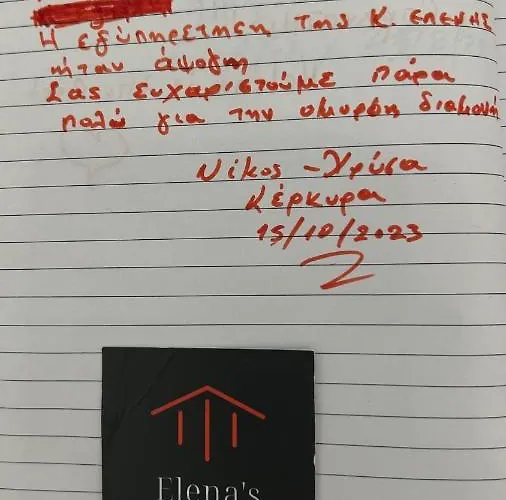 Η εξυπηρετηση της κ. ΕΛΕΝΗΣ
ήταν άψογη
Σας ευχαριστούμε πάρα
πολύ για την όμορφη διαμονή
Νίκος - Χρύσα
Κέρκυρα
15/10/2023
Elena's